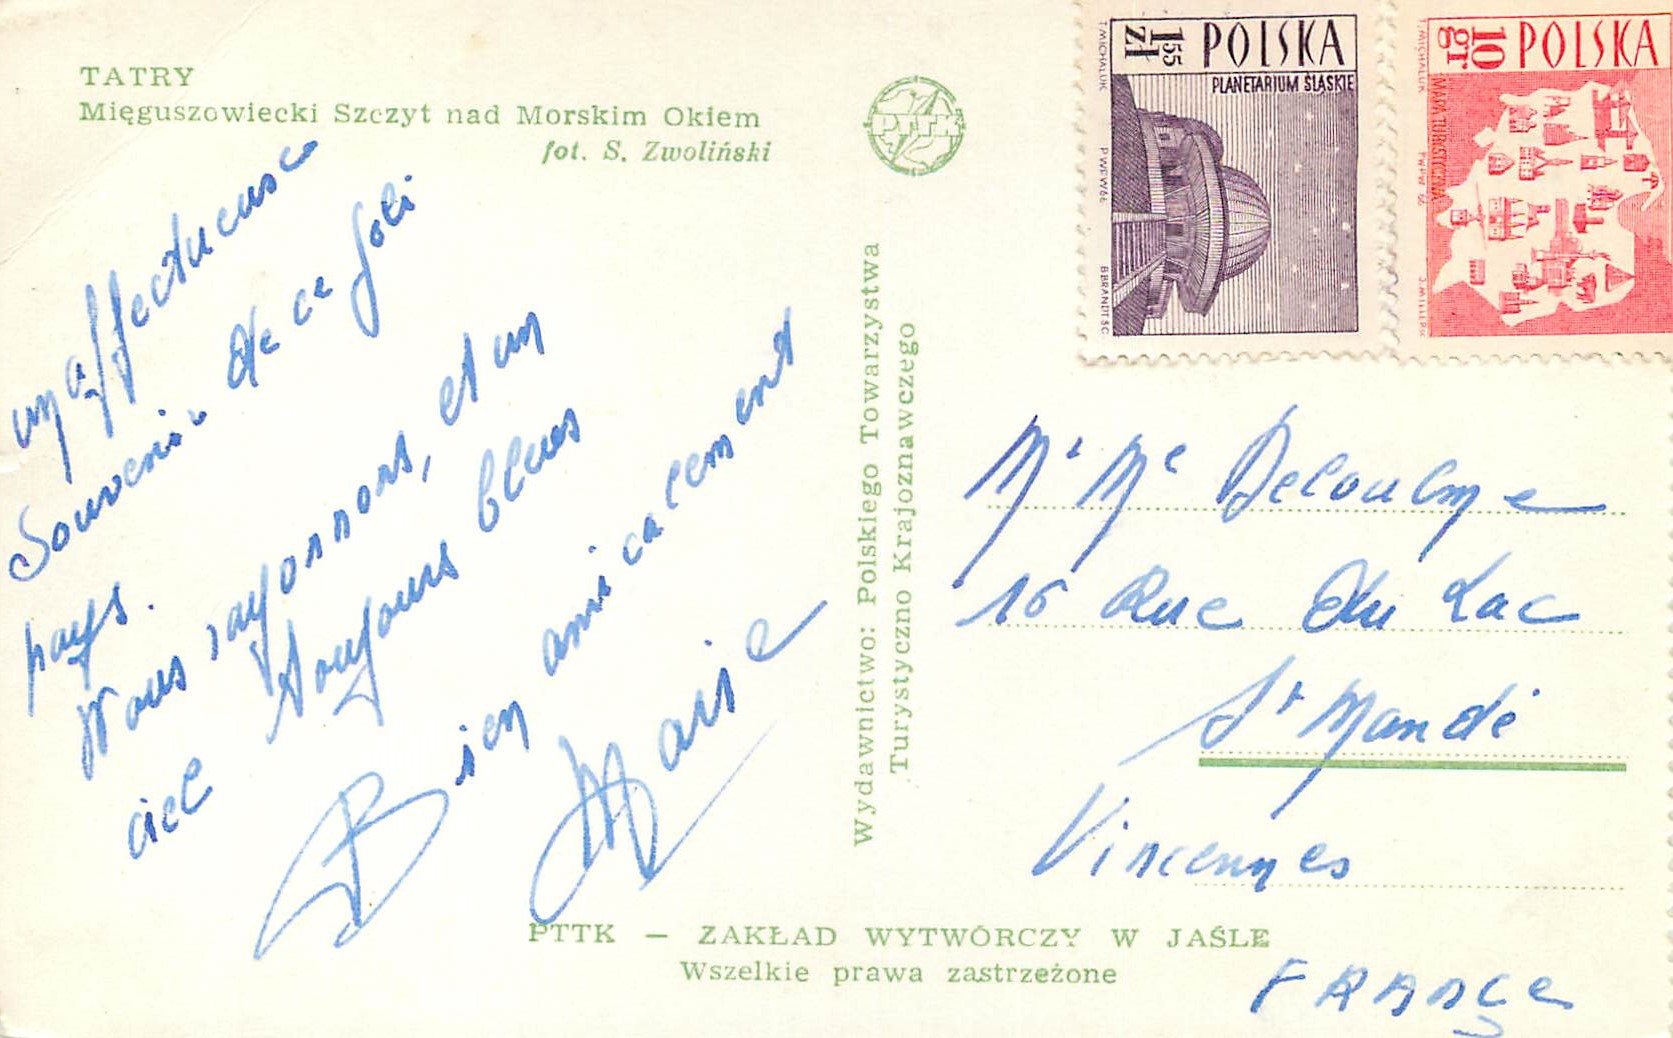 TATRY
Mięguszowiecki Szczyt nad Morskim Okiem
fot. S. Zwoliński
un affectueux
Souvenir de ce joli
pays.
Nous rayonnons, et un
ciel toujours bleus
Bien amicalement
Marie
Wydawnictwo: Polskiego Towarzystwa
Turystyczno Krajoznawczego
PTTK — ZAKŁAD WYTWÓRCZY W JAŚLE
Wszelkie prawa zastrzeżone
PTTK
1 55 zł
POLSKA
PLANETARIUM ŚLĄSKIE
T. MICHALUK
PWPW 66
B. BRANDT SC.
10 gr
POLSKA
MAPA TURYSTYCZNA
T. MICHALUK
PWPW 66
J. MILLER SC
Mr Me Deloulme
16 Rue du Lac
St Mandé
Vincennes
FRANCE